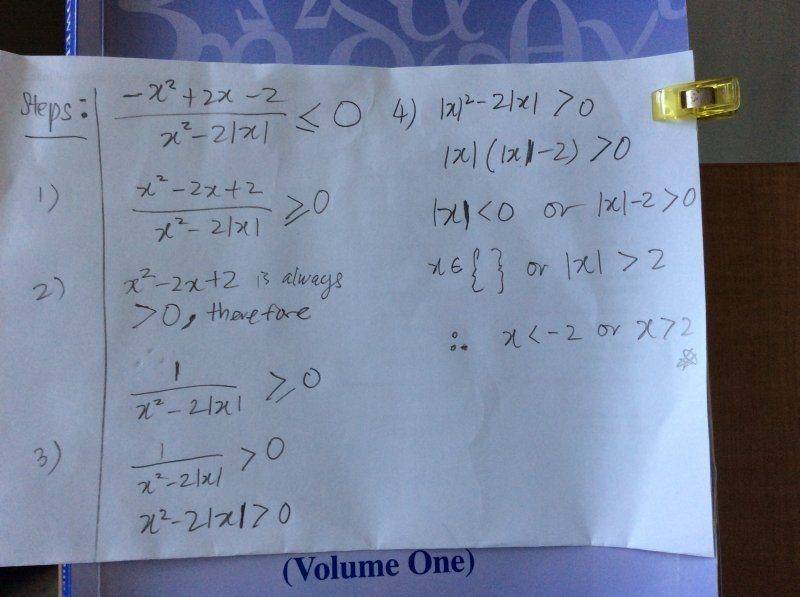 Steps:
(-x² + 2x - 2)/(x² - 2|x|) ≤ 0
1) (x² - 2x + 2)/(x² - 2|x|) ≥ 0
2) x² - 2x + 2 is always
> 0, therefore
1/(x² - 2|x|) ≥ 0
3) 1/(x² - 2|x|) > 0
x² - 2|x| > 0
4) |x|² - 2|x| > 0
|x| (|x| - 2) > 0
|x| < 0 or |x| - 2 > 0
x ∈ { } or |x| > 2
∴ x < -2 or x > 2
(Volume One)